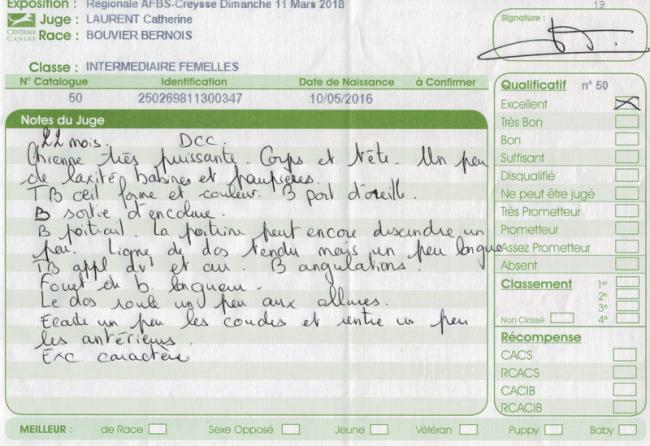 Exposition : Régionale AFBS-Creysse Dimanche 11 Mars 2018
19
CENTRALE CANINE
Juge : LAURENT Catherine
Race : BOUVIER BERNOIS
Signature :
Classe : INTERMEDIAIRE FEMELLES
N° Catalogue Identification Date de Naissance à Confirmer
50 250269811300347 10/05/2016
Notes du Juge
22 mois. DCC.
Chienne très puissante. Corps et tête. Un peu
de laxité babines et paupières.
TB œil forme et couleur. B port d'oreille.
B sortie d'encolure.
B poitrail. La poitrine peut encore descendre un
peu. Ligne de dos tendu mais un peu longue
TB appl dvt et arr. B angulations.
Fouet de b. longueur.
Le dos roule un peu aux allures.
Ecarte un peu les coudes et rentre un peu
les antérieurs.
Exc caractère
Qualificatif n° 50
Excellent
Très Bon
Bon
Suffisant
Disqualifié
Ne peut être jugé
Très Prometteur
Prometteur
Assez Prometteur
Absent
Classement 1er
2e
3e
Non Classé 4e
Récompense
CACS
RCACS
CACIB
RCACIB
MEILLEUR : de Race Sexe Opposé Jeune Vétéran Puppy Baby